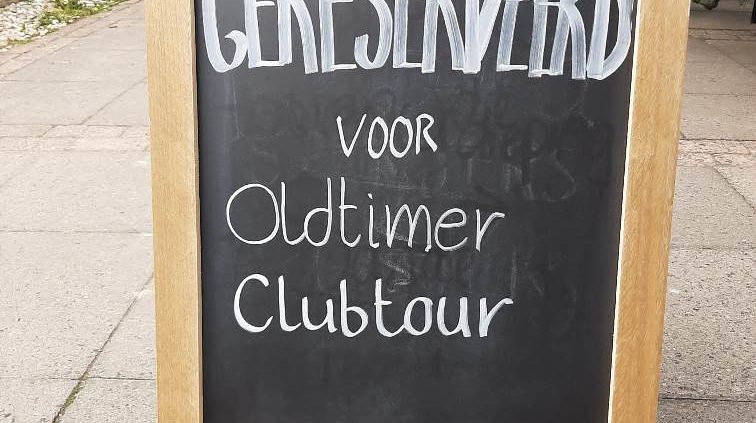 GERESERVEERD
VOOR
Oldtimer
Clubtour